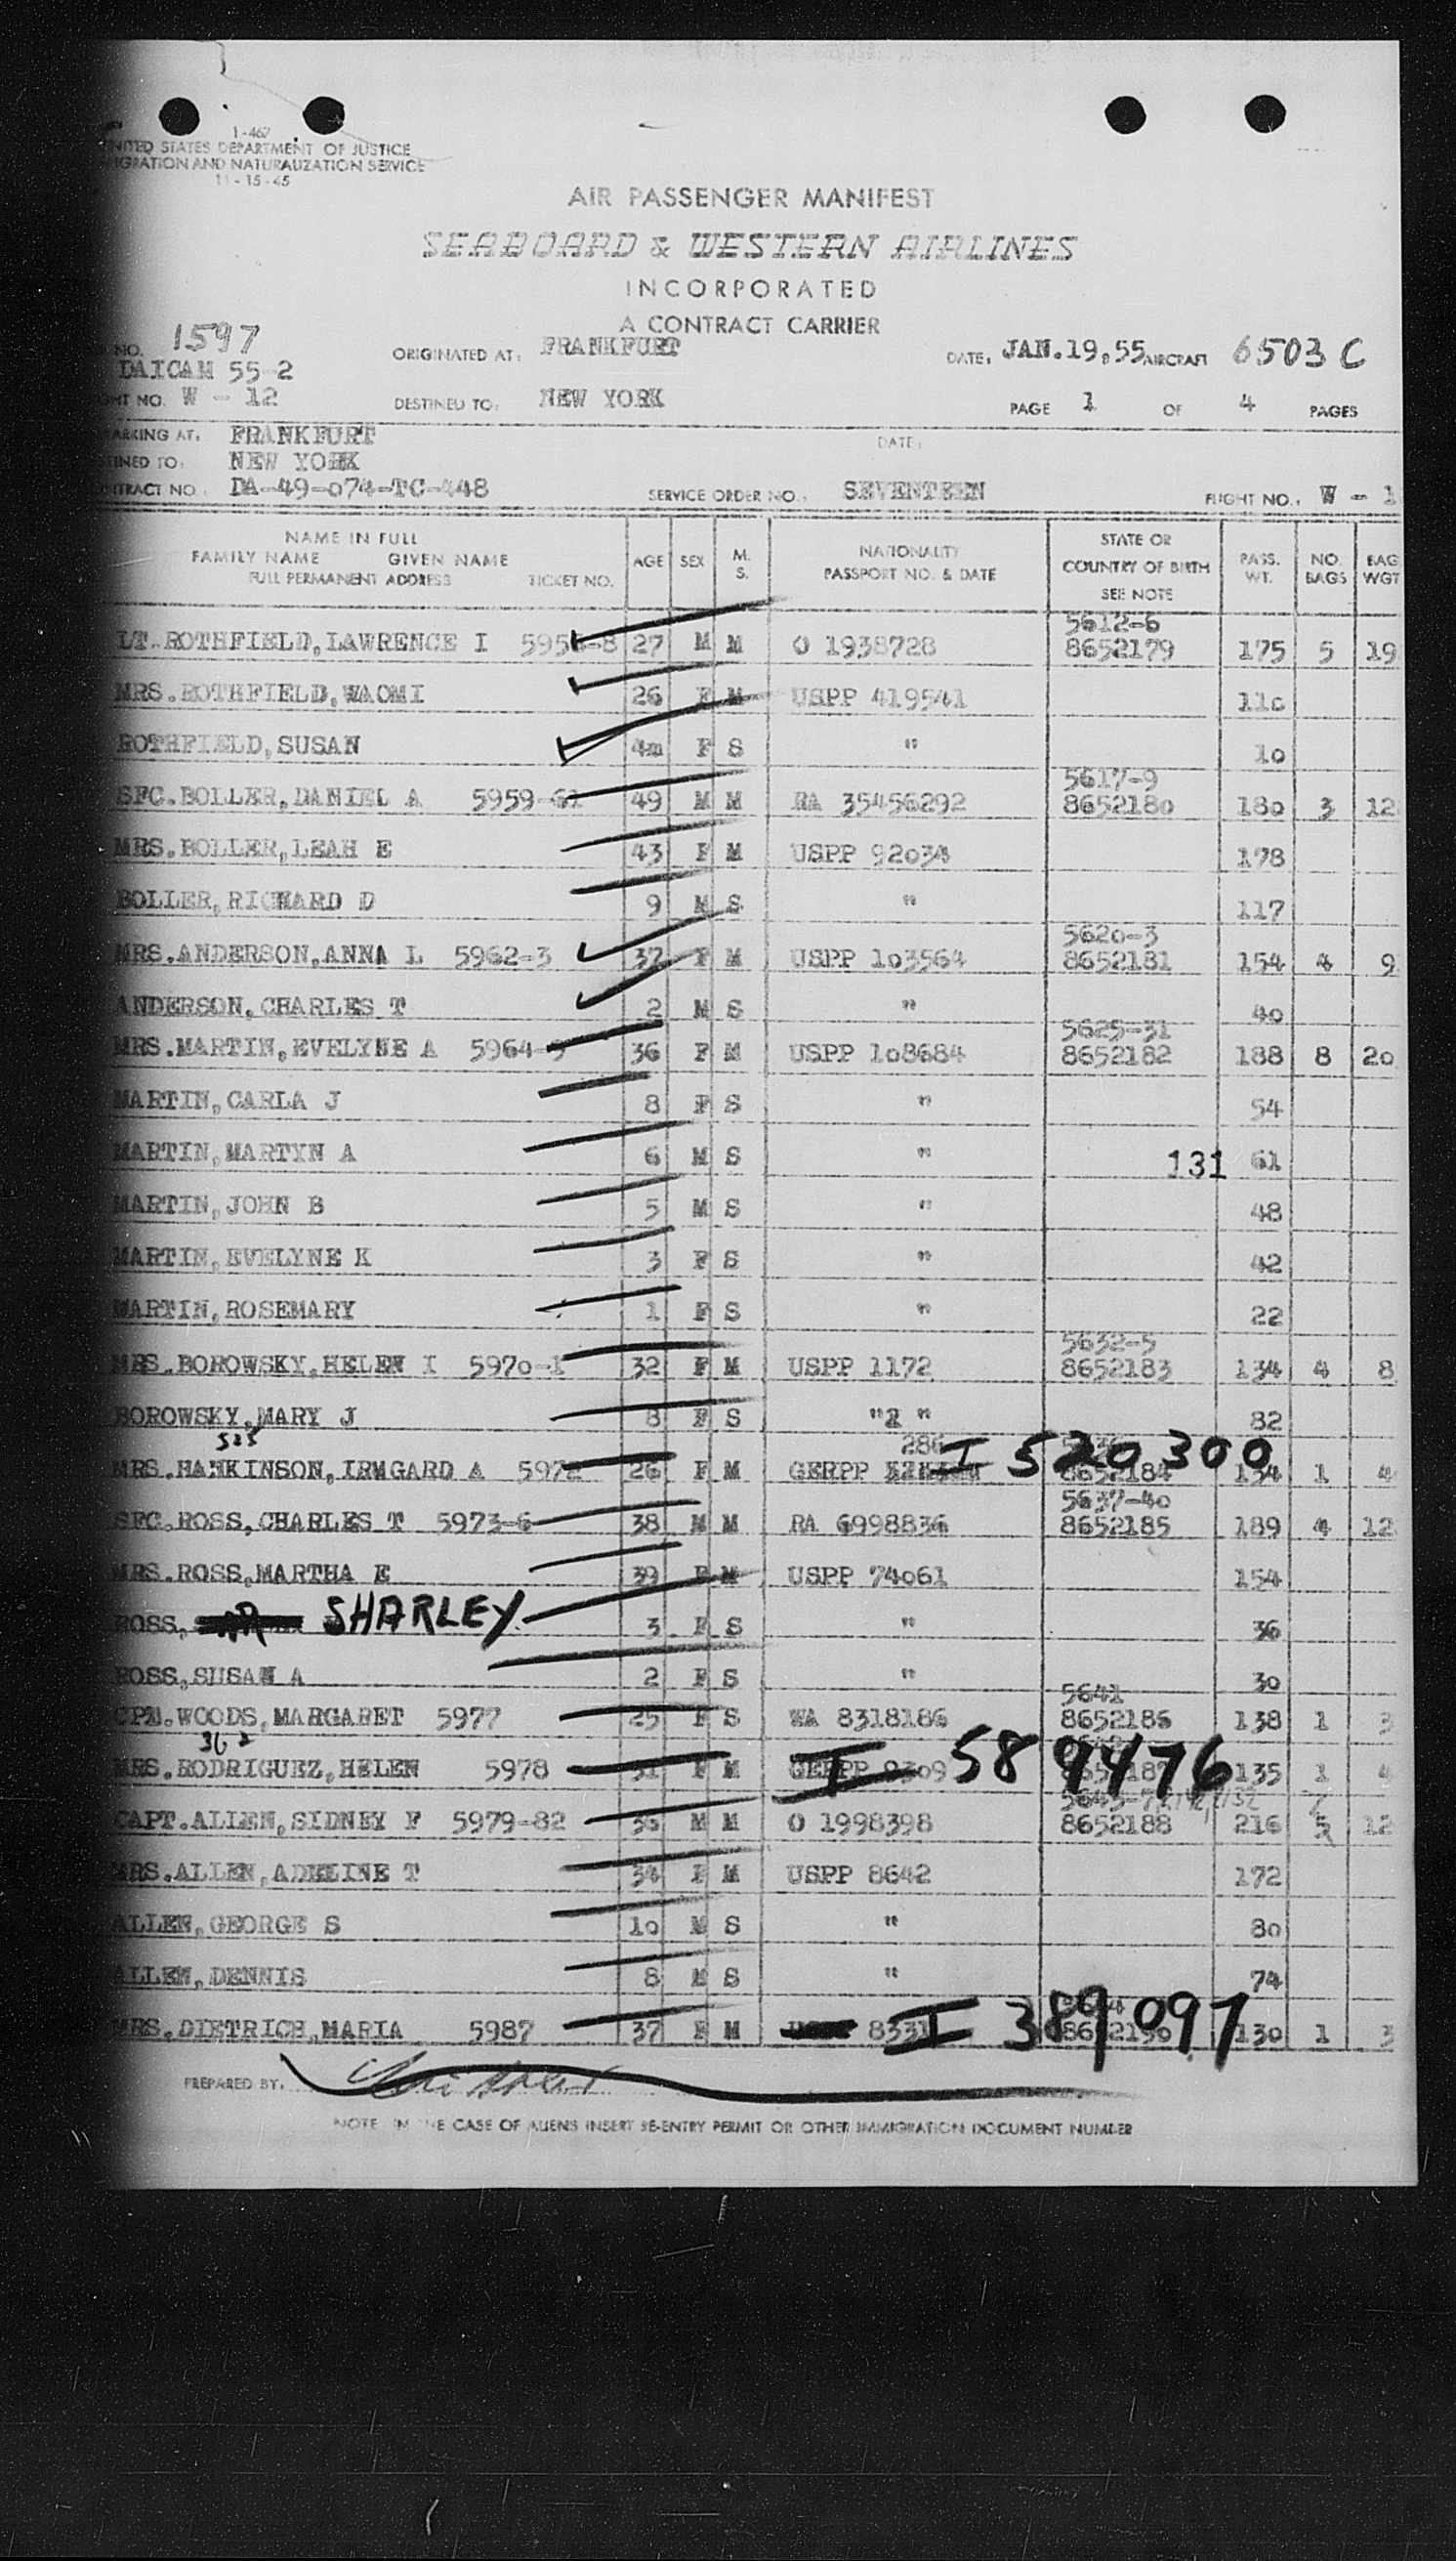 1-467
NITED STATES DEPARTMENT OF JUSTICE
IGRATION AND NATURALIZATION SERVICE
11-15-45
AIR PASSENGER MANIFEST
SEABOARD & WESTERN AIRLINES
INCORPORATED
A CONTRACT CARRIER
NO. 1597 ORIGINATED AT: FRANKFURT DATE, JAN.19,55 AIRCRAFT 6503 C
DAICAM 55-2
HT NO. W - 12 DESTINED TO: NEW YORK PAGE 1 OF 4 PAGES
ARKING AT, FRANKFURT DATE,
TINED TO: NEW YORK
NTRACT NO. DA-49-074-TC-448 SERVICE ORDER NO. SEVENTEEN FLIGHT NO. W - 1
NAME IN FULL
FAMILY NAME GIVEN NAME
FULL PERMANENT ADDRESS TICKET NO. AGE SEX M. S. NATIONALITY PASSPORT NO. & DATE STATE OR COUNTRY OF BIRTH SEE NOTE PASS. WT. NO. BAGS BAG WGT
5612-6
LT.ROTHFIELD,LAWRENCE I 27 M M O 1938728 8652179 175 5 19
MRS.ROTHFIELD,WAOMI 26 F M USPP 419541 110
ROTHFIELD,SUSAN 4m F S " 10
5617-9
SFC.BOLLER,DANIEL A 5959-61 49 M M RA 35456292 8652180 180 3 12
MRS.BOLLER,LEAH E 43 F M USPP 92034 178
BOLLER,RICHARD D 9 M S " 117
5620-3
MRS.ANDERSON,ANNA L 5962-3 37 F M USPP 103564 8652181 154 4 9
ANDERSON,CHARLES T 2 M S " 40
5625-31
MRS.MARTIN,EVELYNE A 5964-9 36 F M USPP 108684 8652182 188 8 20
MARTIN,CARLA J 8 F S " 54
MARTIN,MARTYN A 6 M S " 131 61
MARTIN,JOHN B 5 M S " 48
MARTIN,EVELYNE K 3 F S " 42
MARTIN,ROSEMARY 1 F S " 22
5632-5
MRS.BOROWSKY,HELEN I 5970-1 32 F M USPP 1172 8652183 134 4 8
BOROWSKY,MARY J 8 F S " " 82
525 286
MRS.HANKINSON,IRMGARD A 5972 26 F M GERPP I 520 300 8652184 134 1 4
5637-40
SFC.ROSS,CHARLES T 5973-6 38 M M RA 6998836 8652185 189 4 12
MRS.ROSS,MARTHA E 39 F M USPP 74061 154
ROSS, SHARLEY 3 F S " 36
ROSS,SUSAN A 2 F S " 30
5641
CPL.WOODS,MARGARET 5977 25 F S WA 8318186 8652186 138 1 3
362
MRS.RODRIGUEZ,HELEN 5978 31 F M GERPP 9309 I 589476 135 1 4
CAPT.ALLEN,SIDNEY F 5979-82 36 M M O 1998398 8652188 216 5 12
MRS.ALLEN,ADELINE T 34 F M USPP 8642 172
ALLEN,GEORGE S 10 M S " 80
ALLEN,DENNIS 8 M S " 74
MRS.DIETRICH,MARIA 5987 37 F M 8331 I 389097 130 1 3
PREPARED BY.
NOTE IN THE CASE OF ALIENS INSERT RE-ENTRY PERMIT OR OTHER IMMIGRATION DOCUMENT NUMBER